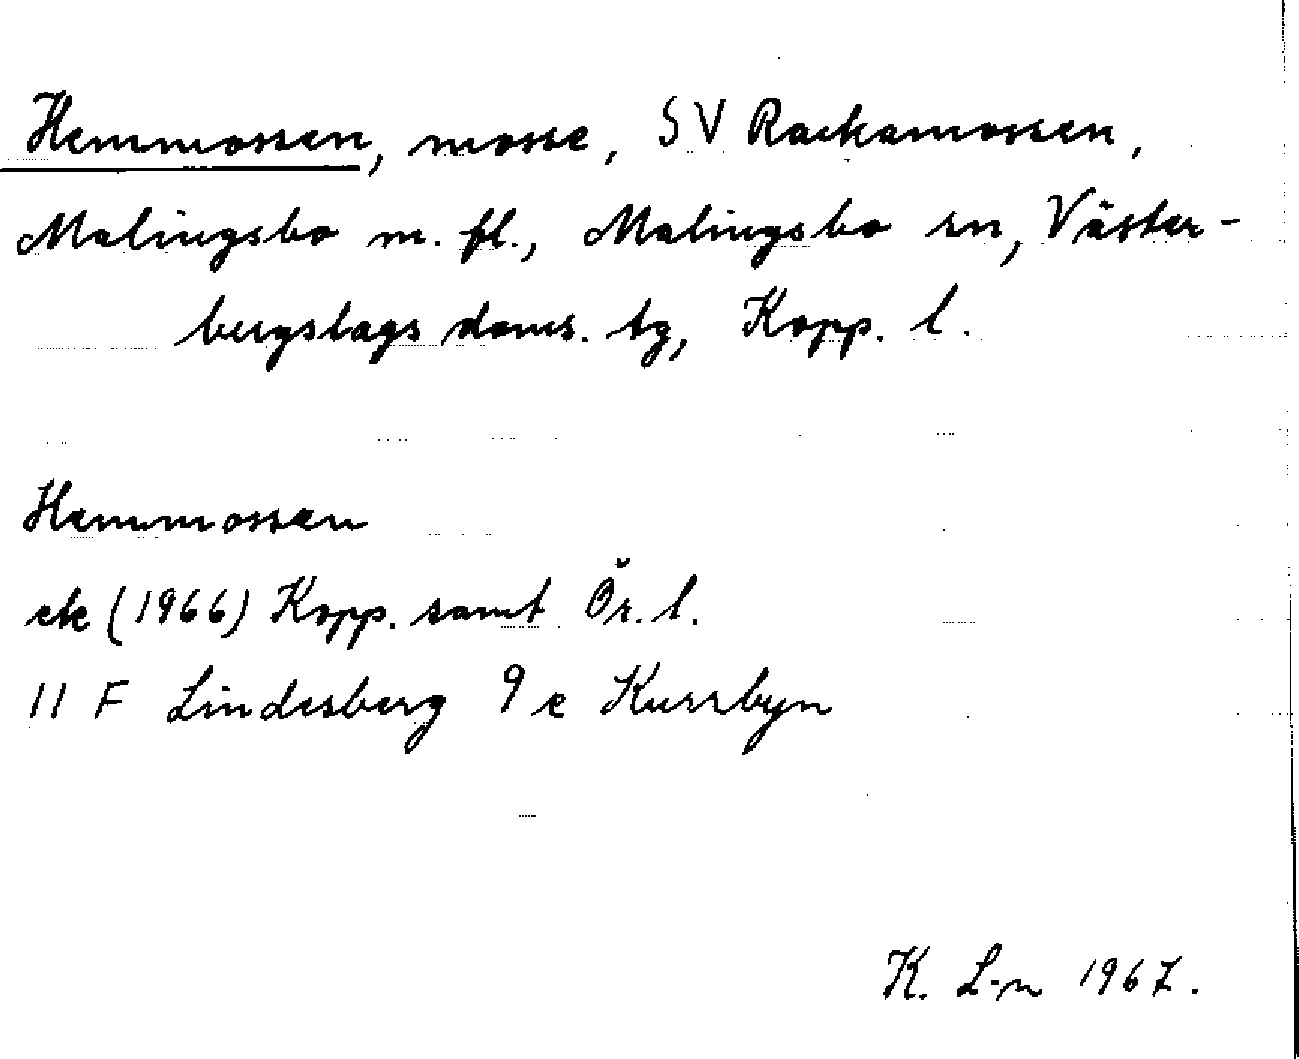 Hemmossen, mosse, SV Rackamossen,
Malingsbo m. fl., Malingsbo sn, Väster-
bergslags doms. tg, Kopp. l.
Hemmossen
ek (1966) Kopp. samt Ör. l.
11 F Lindesberg 9 e Kursbyn
K. L-n 1967.